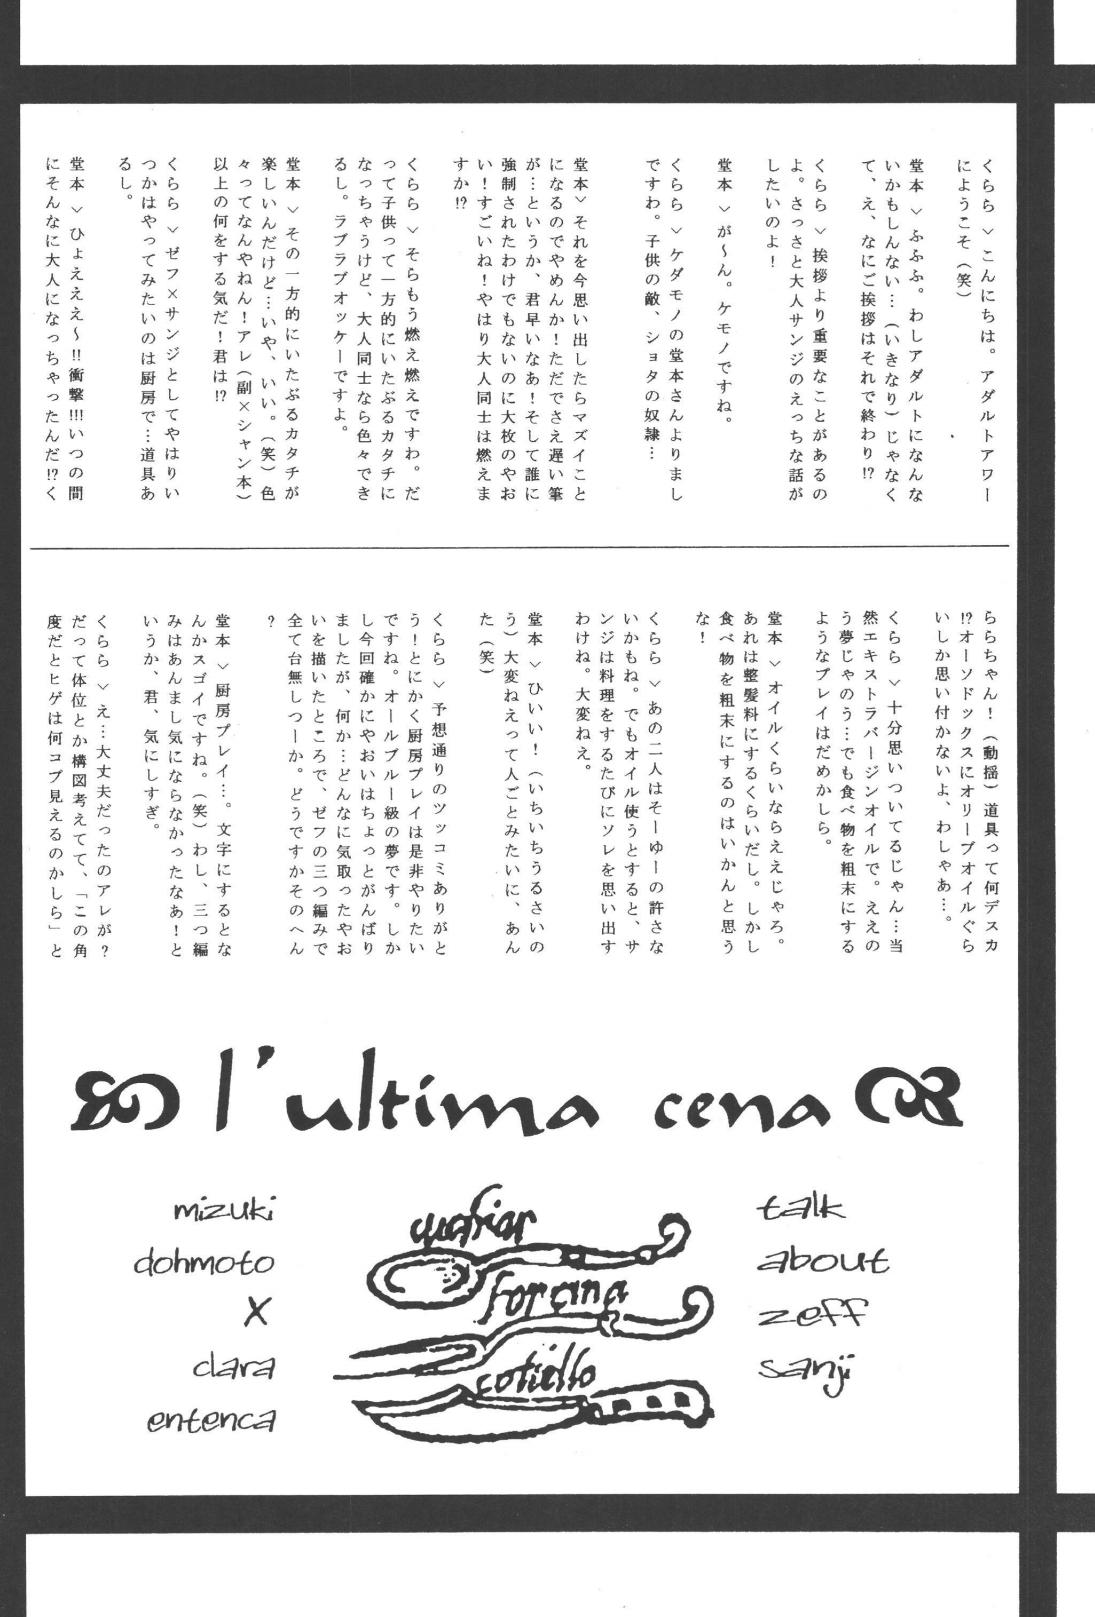 くらら＞こんにちは。アダルトアワー
にようこそ（笑）
堂本＞ふふふ。わしアダルトになんな
いかもしんない…（いきなり）じゃなく
て、え、なにご挨拶はそれで終わり!?
くらら＞挨拶より重要なことがあるの
よ。さっさと大人サンジのえっちな話が
したいのよ！
堂本＞が〜ん。ケモノですね。
くらら＞ケダモノの堂本さんよりまし
ですわ。子供の敵、ショタの奴隷…
堂本＞それを今思い出したらマズイこと
になるのでやめんか！ただでさえ遅い筆
が…というか、君早いなあ！そして誰に
強制されたわけでもないのに大枚のやお
い！すごいね！やはり大人同士は燃えま
すか!?
くらら＞そらもう燃え燃えですわ。だ
って子供って一方的にいたぶるカタチに
なっちゃうけど、大人同士なら色々でき
るし。ラブラブオッケーですよ。
堂本＞その一方的にいたぶるカタチが
楽しいんだけど…いや、いい。（笑）色
々ってなんやねん！アレ（副×シャン本）
以上の何をする気だ！君は!?
くらら＞ゼフ×サンジとしてやはりい
つかはやってみたいのは厨房で…道具あ
るし。
堂本＞ひょえええ〜!!衝撃!!!いつの間
にそんなに大人になっちゃったんだ!?く
ららちゃん！（動揺）道具って何デスカ
!?オーソドックスにオリーブオイルぐら
いしか思い付かないよ、わしゃあ…。
くらら＞十分思いついてるじゃん…当
然エキストラバージンオイルで。ええの
う夢じゃのう…でも食べ物を粗末にする
ようなプレイはだめかしら。
堂本＞オイルくらいならええじゃろ。
あれは整髪料にするくらいだし。しかし
食べ物を粗末にするのはいかんと思う
な！
くらら＞あの二人はそーゆーの許さな
いかもね。でもオイル使うとすると、サ
ンジは料理をするたびにソレを思い出す
わけね。大変ねえ。
堂本＞ひいい！（いちいちうるさいの
う）大変ねえって人ごとみたいに、あん
た（笑）
くらら＞予想通りのツッコミありがと
う！とにかく厨房プレイは是非やりたい
ですね。オールブルー級の夢です。しか
し今回確かにやおいはちょっとがんばり
ましたが、何か…どんなに気取ったやお
いを描いたところで、ゼフの三つ編みで
全て台無しつーか。どうですかそのへん
？
堂本＞厨房プレイ…。文字にするとな
んかスゴイですね。（笑）わし、三つ編
みはあんまし気にならなかったなあ！と
いうか、君、気にしすぎ。
くらら＞え…大丈夫だったのアレが？
だって体位とか構図考えてて、「この角
度だとヒゲは何コブ見えるのかしら」と
l'ultima cena
mizuki
dohmoto
X
clara
entenca
forcina
coltello
talk
about
zeff
sanji